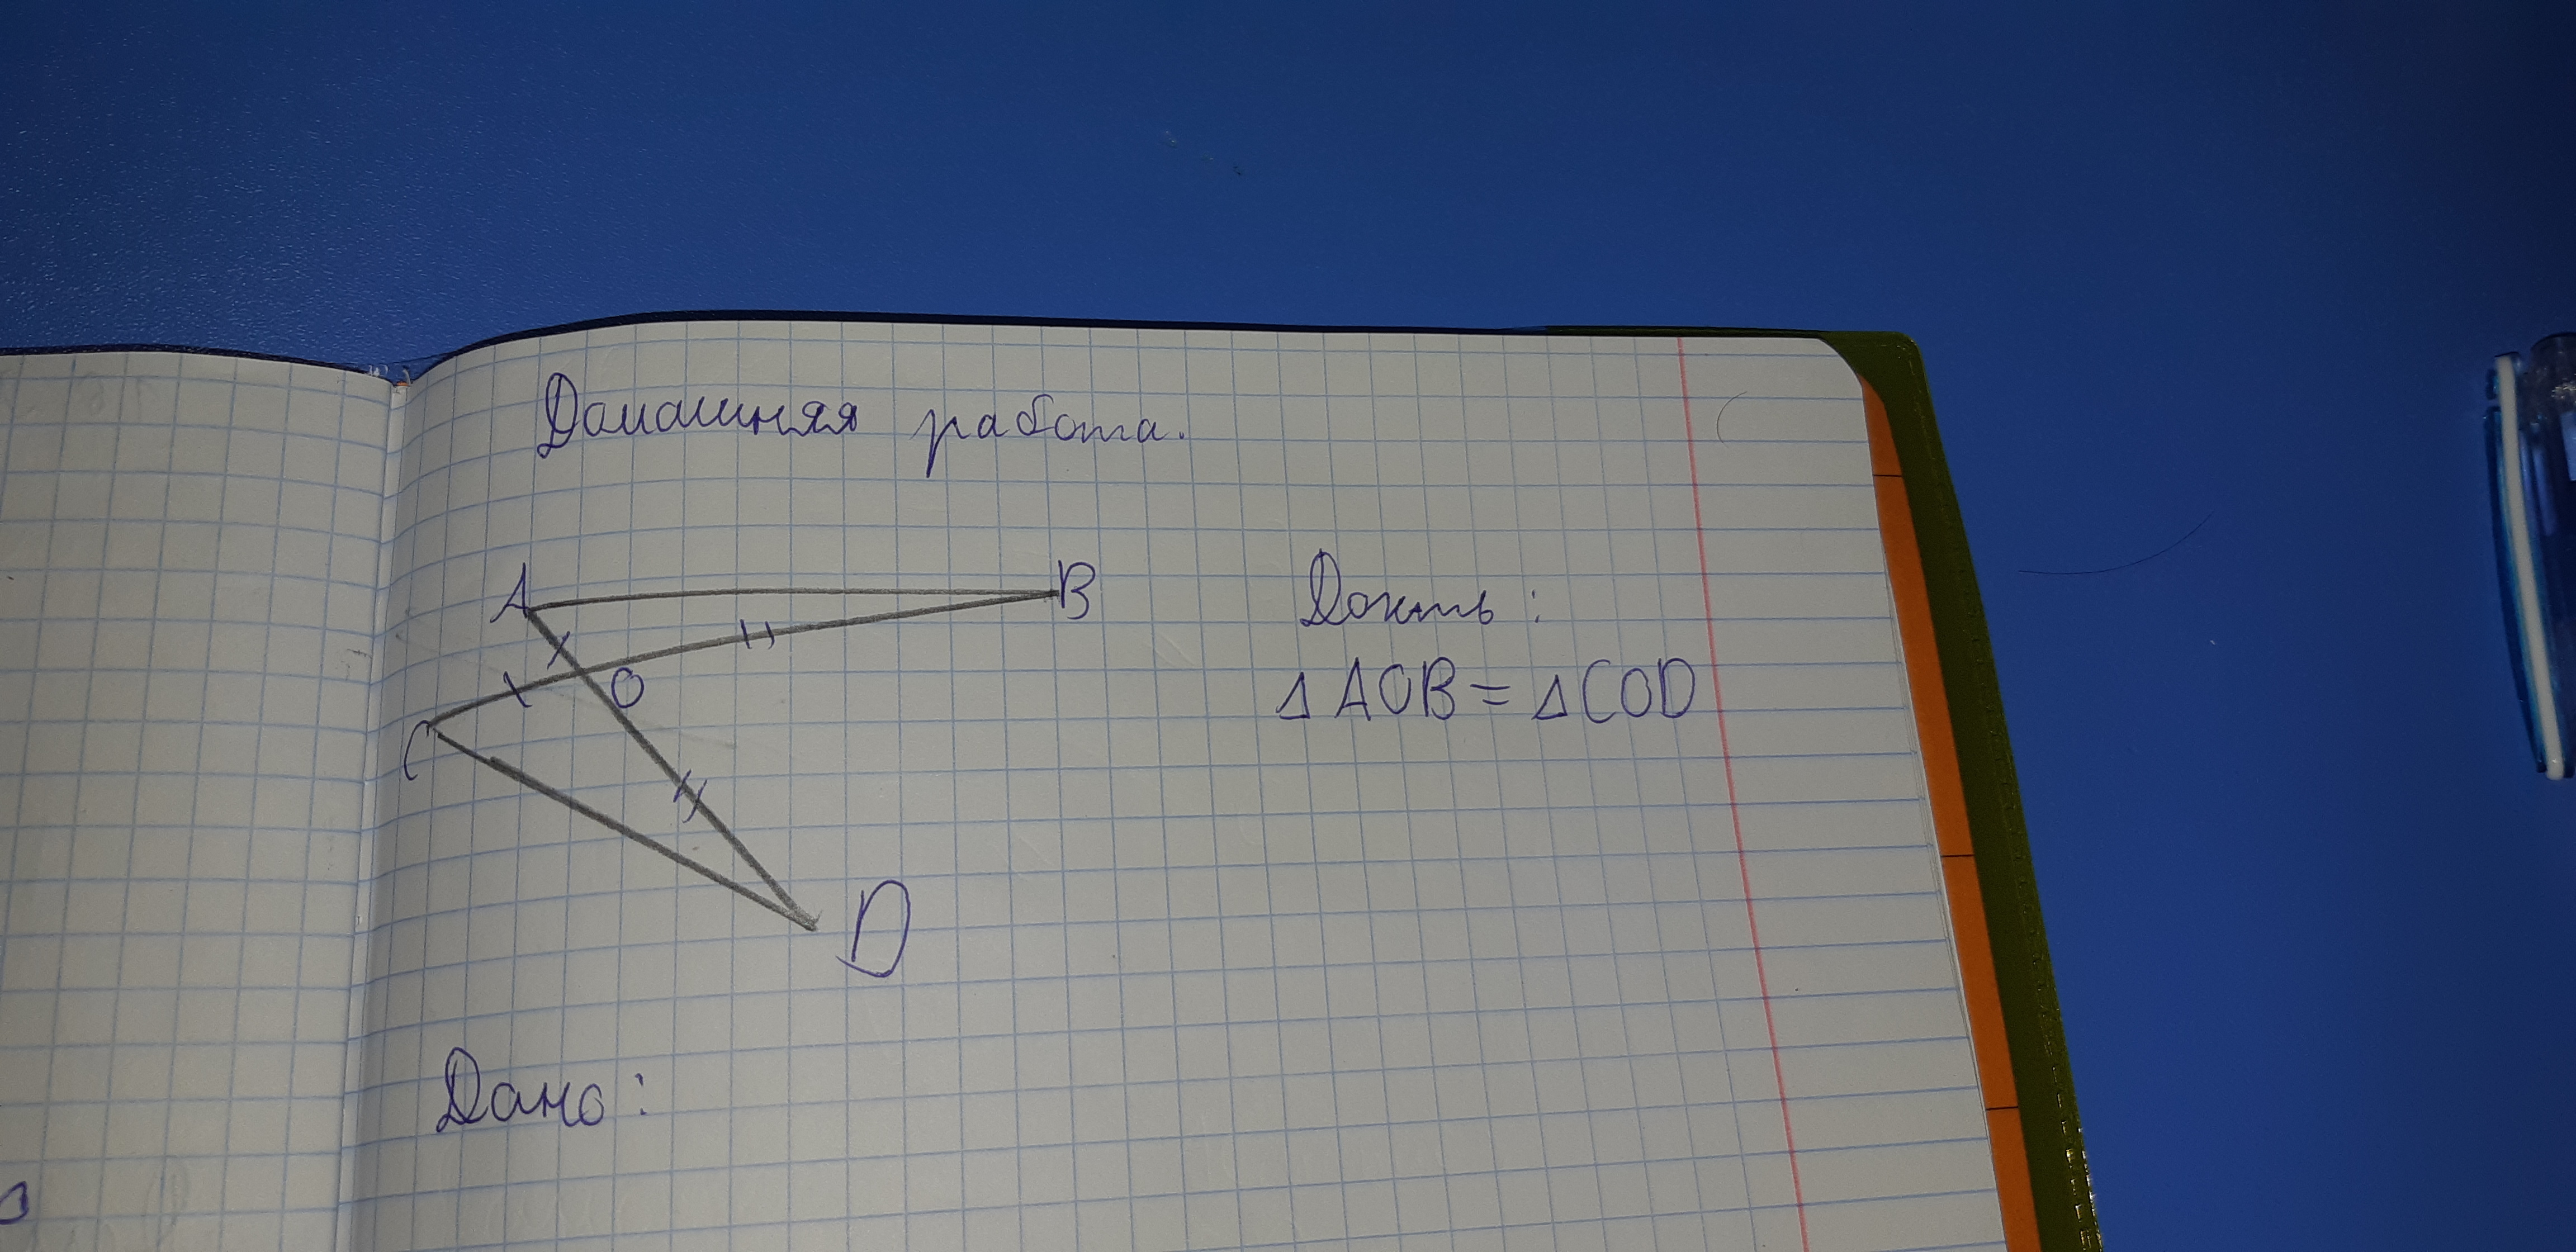 Домашняя работа.
A
B
O
C
D
Док-ть:
Δ AOB = Δ COD
Дано: